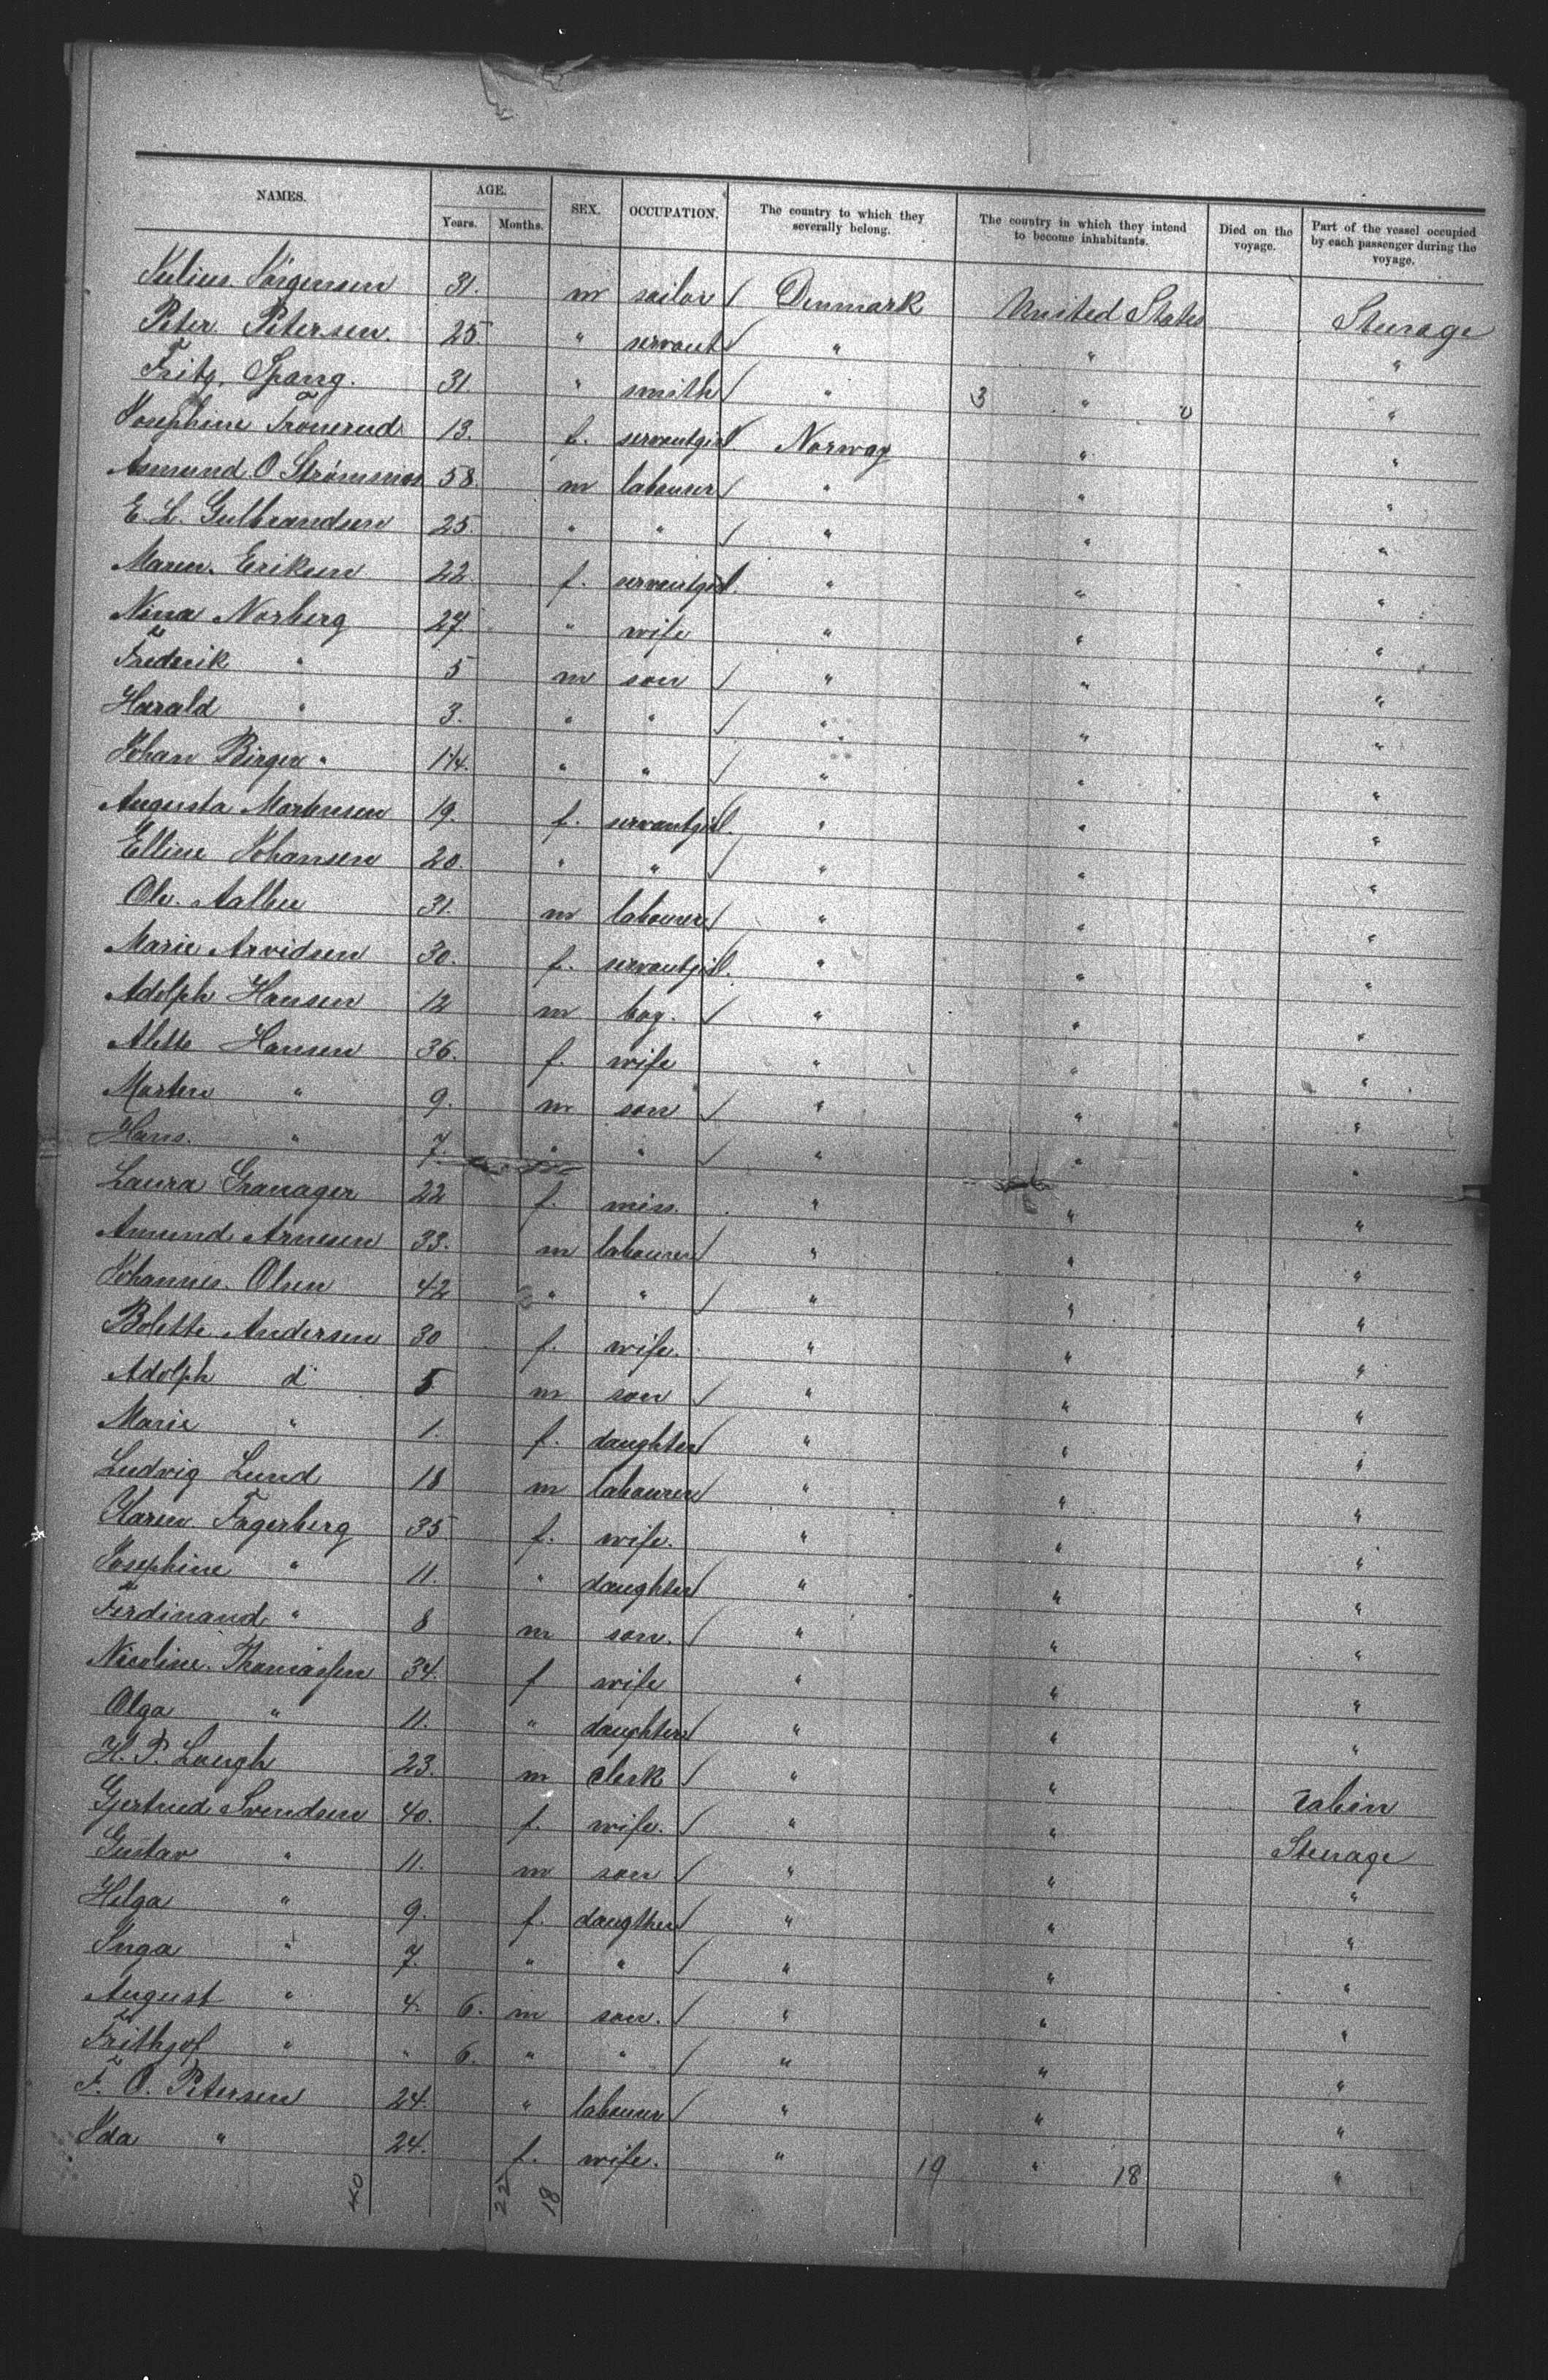 NAMES. AGE. Years. Months. SEX. OCCUPATION. The country to which they severally belong. The country in which they intend to become inhabitants. Died on the voyage. Part of the vessel occupied by each passenger during the voyage.
Julius Jörgensen 31. m sailor / Denmark United States Steerage
Peter Petersen. 25. " servant / " " "
Fritz. Spang. 31 " smith / " 3 " 0 "
Josephine Tronerud 13. f. servantgirl. Norway " "
Asmund O. Strömsnos 58. m labourer / " " "
E. L. Gulbrandsen 25. " " / " " "
Maren. Eriksen 22. f. servantgirl. " " "
Nina Norberg 27. " wife " " "
Frederik " 5 m son / " " "
Harald " 3. " " / " " "
Johan Birger " 1 1/4. " " / " " "
Augusta Mortensen 19. f. servantgirl. " " "
Elline Johansen 20. " " / " " "
Ole. Aalbu 31. m labourer / " " "
Marie Arvidsen 30. f. servantgirl. " " "
Adolph Hansen 12 m boy. / " " "
Alette Hansen 36. f. wife " " "
Morten " 9. m son / " " "
Hans. " 7. " " / " " "
Laura Granager 22 f. miss. " " "
Amund Arnesen 33. m labourer / " " "
Johannes. Olsen 42 " " / " " "
Bolette Andersen 30 f. wife. " " "
Adolph do 5. m son / " " "
Marie " 1. f. daughter / " " "
Ludvig Lund 18 m labourer / " " "
Karen Fagerberg 35 f. wife. " " "
Josephine " 11. " daughter / " " "
Ferdinand " 8 m son. / " " "
Nicoline. Thomassen 34. f wife " " "
Olga " 11. " daughter / " " "
H. P. Laugh 23. m clerk / " " Cabin
Gjertrud Svendsen 40. f. wife. / " " Steerage
Gustav " 11. m son / " " "
Helga " 9. f. daugther / " " "
Inga " 7. " " / " " "
August " 4. 6. m son. / " " "
Frithjof " " 6. " " / " " "
F. O. Petersen 24. " labourer / " " "
Ida " 24. f. wife. " 19 " 18 "
40 22 18